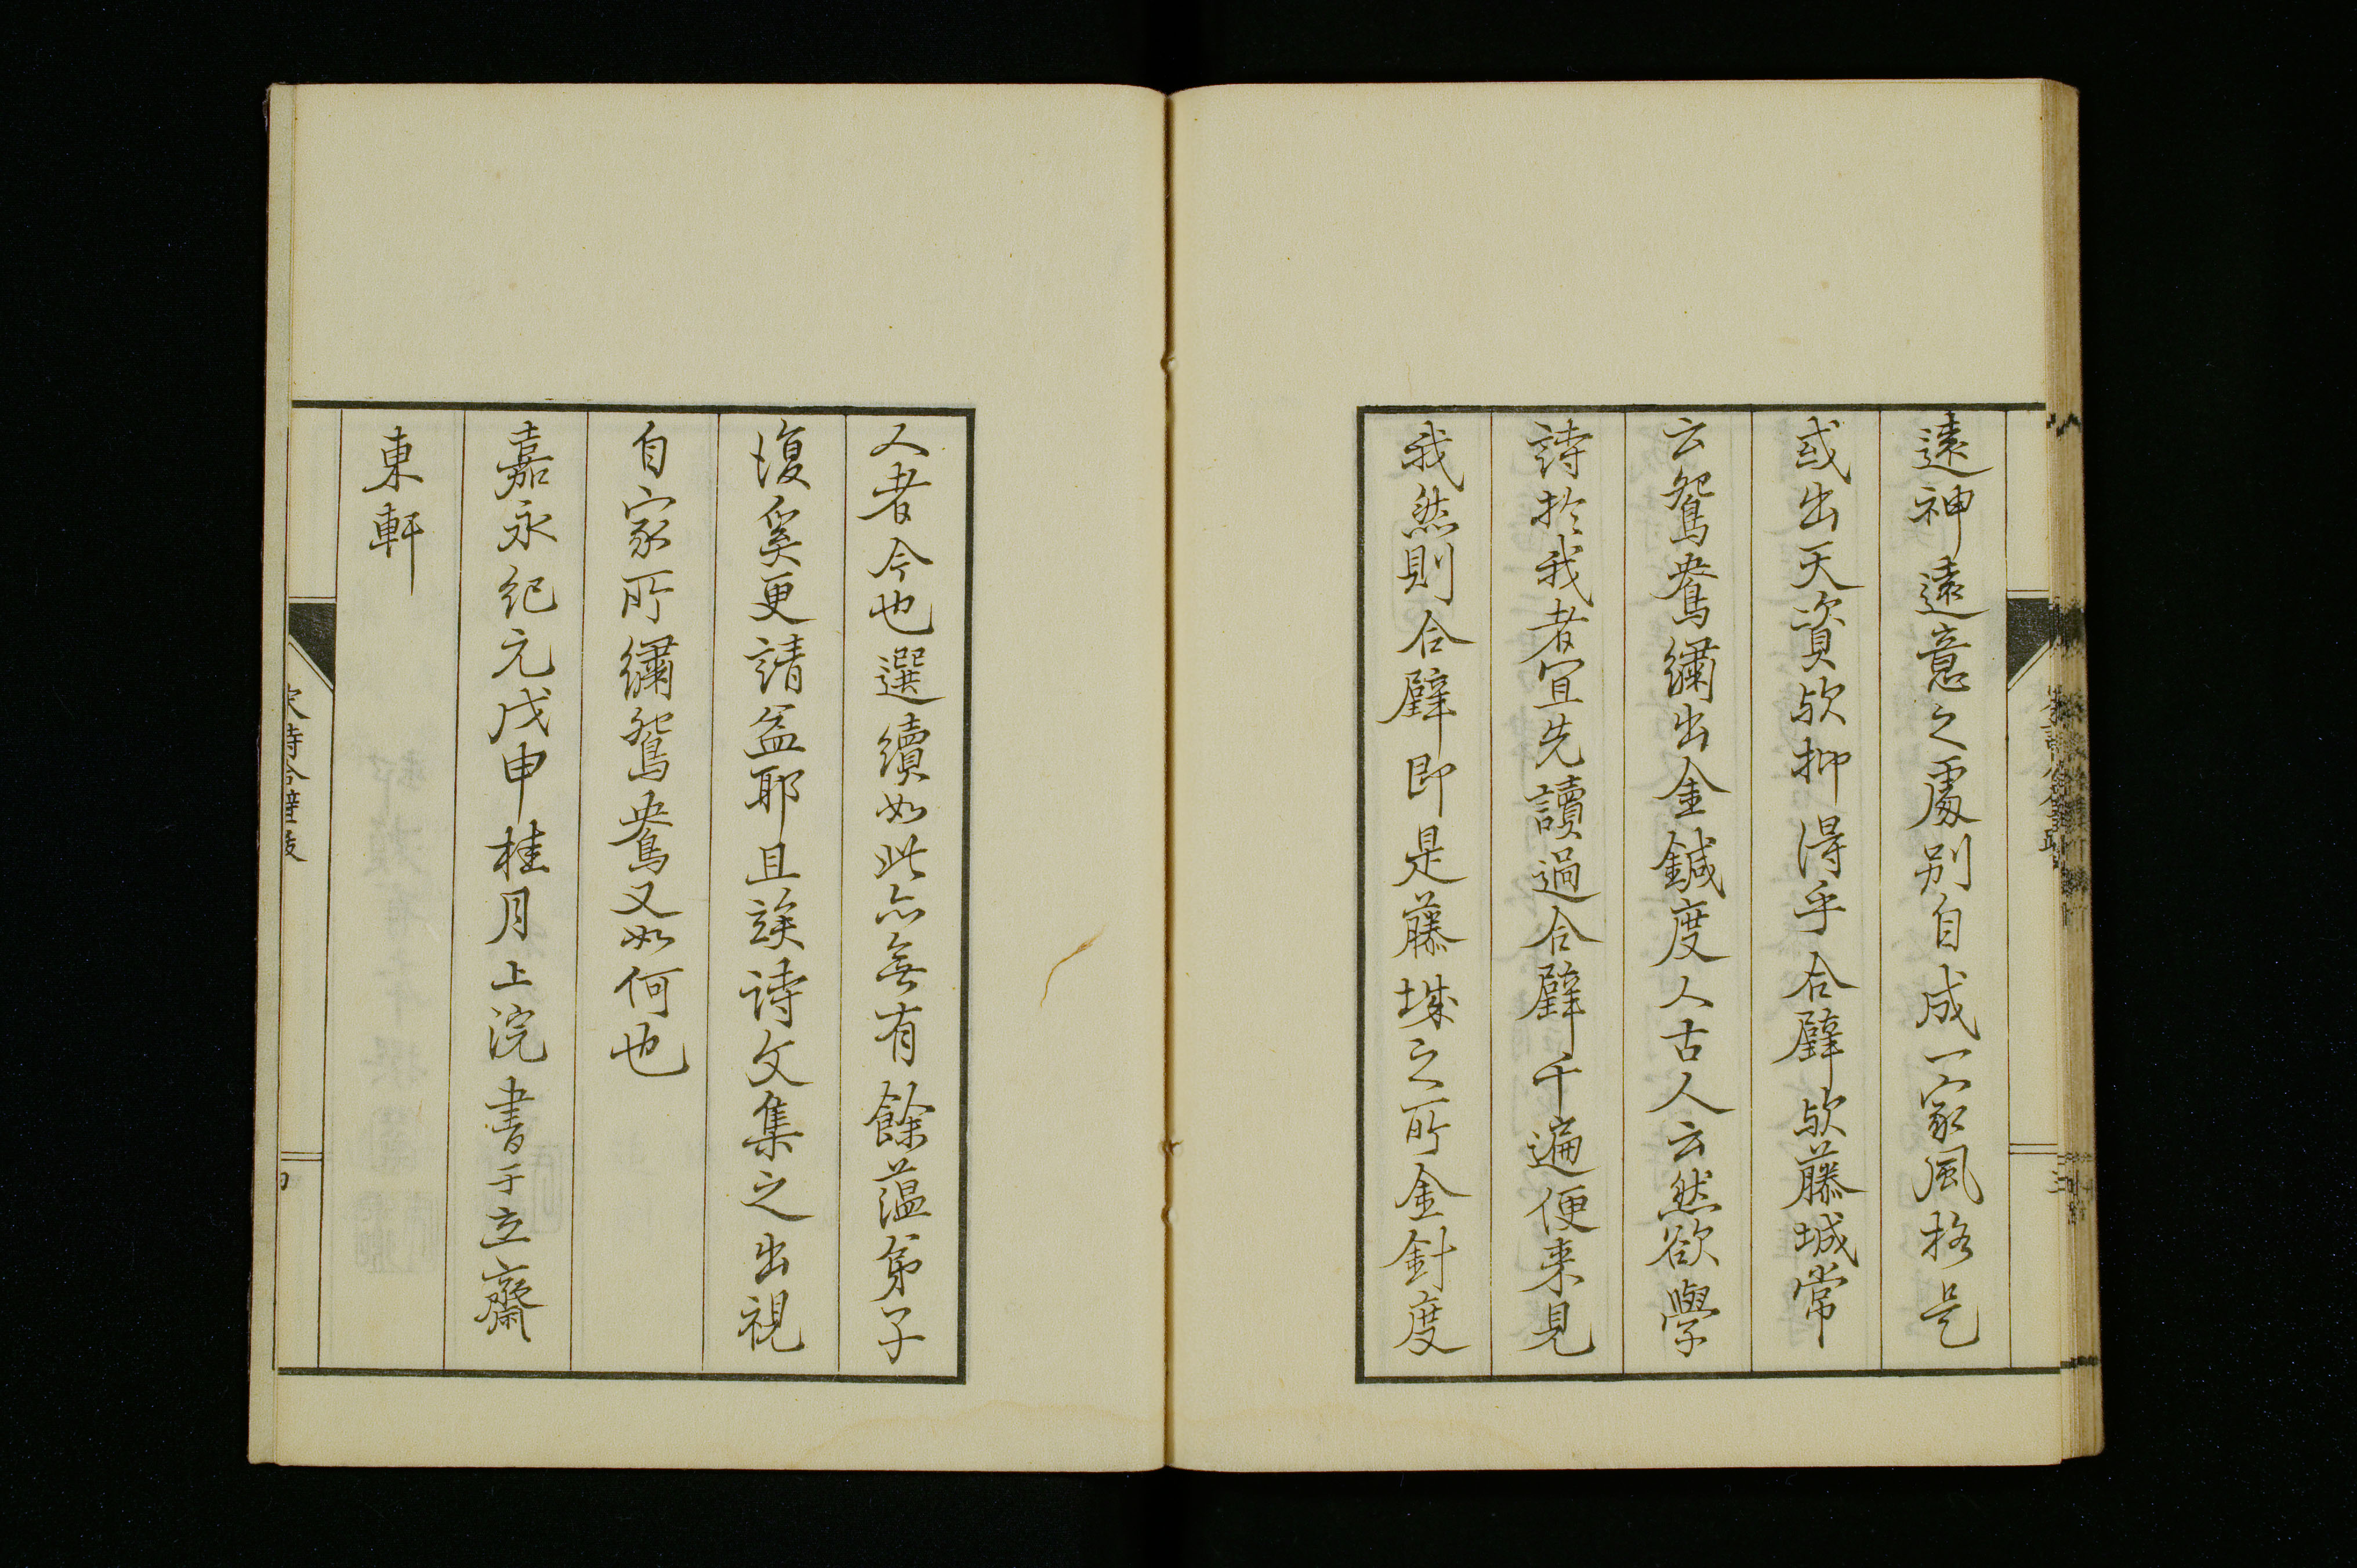 遠神遠意之處別自成一家風格是
或出天資歟抑得乎合璧歟藤城常
云鴛鴦繡出金鍼度人古人云然欲學
詩於我者宜先讀過合璧千遍便来見
我然則合璧即是藤城之所金針度
人者今也選續如此亦無有餘蘊弟子
復奚更請益耶且竢詩文集之出視
自家所繡鴛鴦又如何也
嘉永紀元戊申桂月上浣書于立齋
東軒
宋詩合璧跋